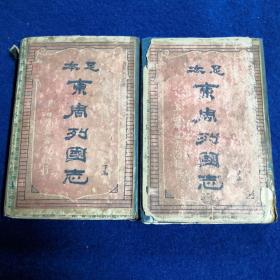 足本
東周列國志
足本
東周列國志